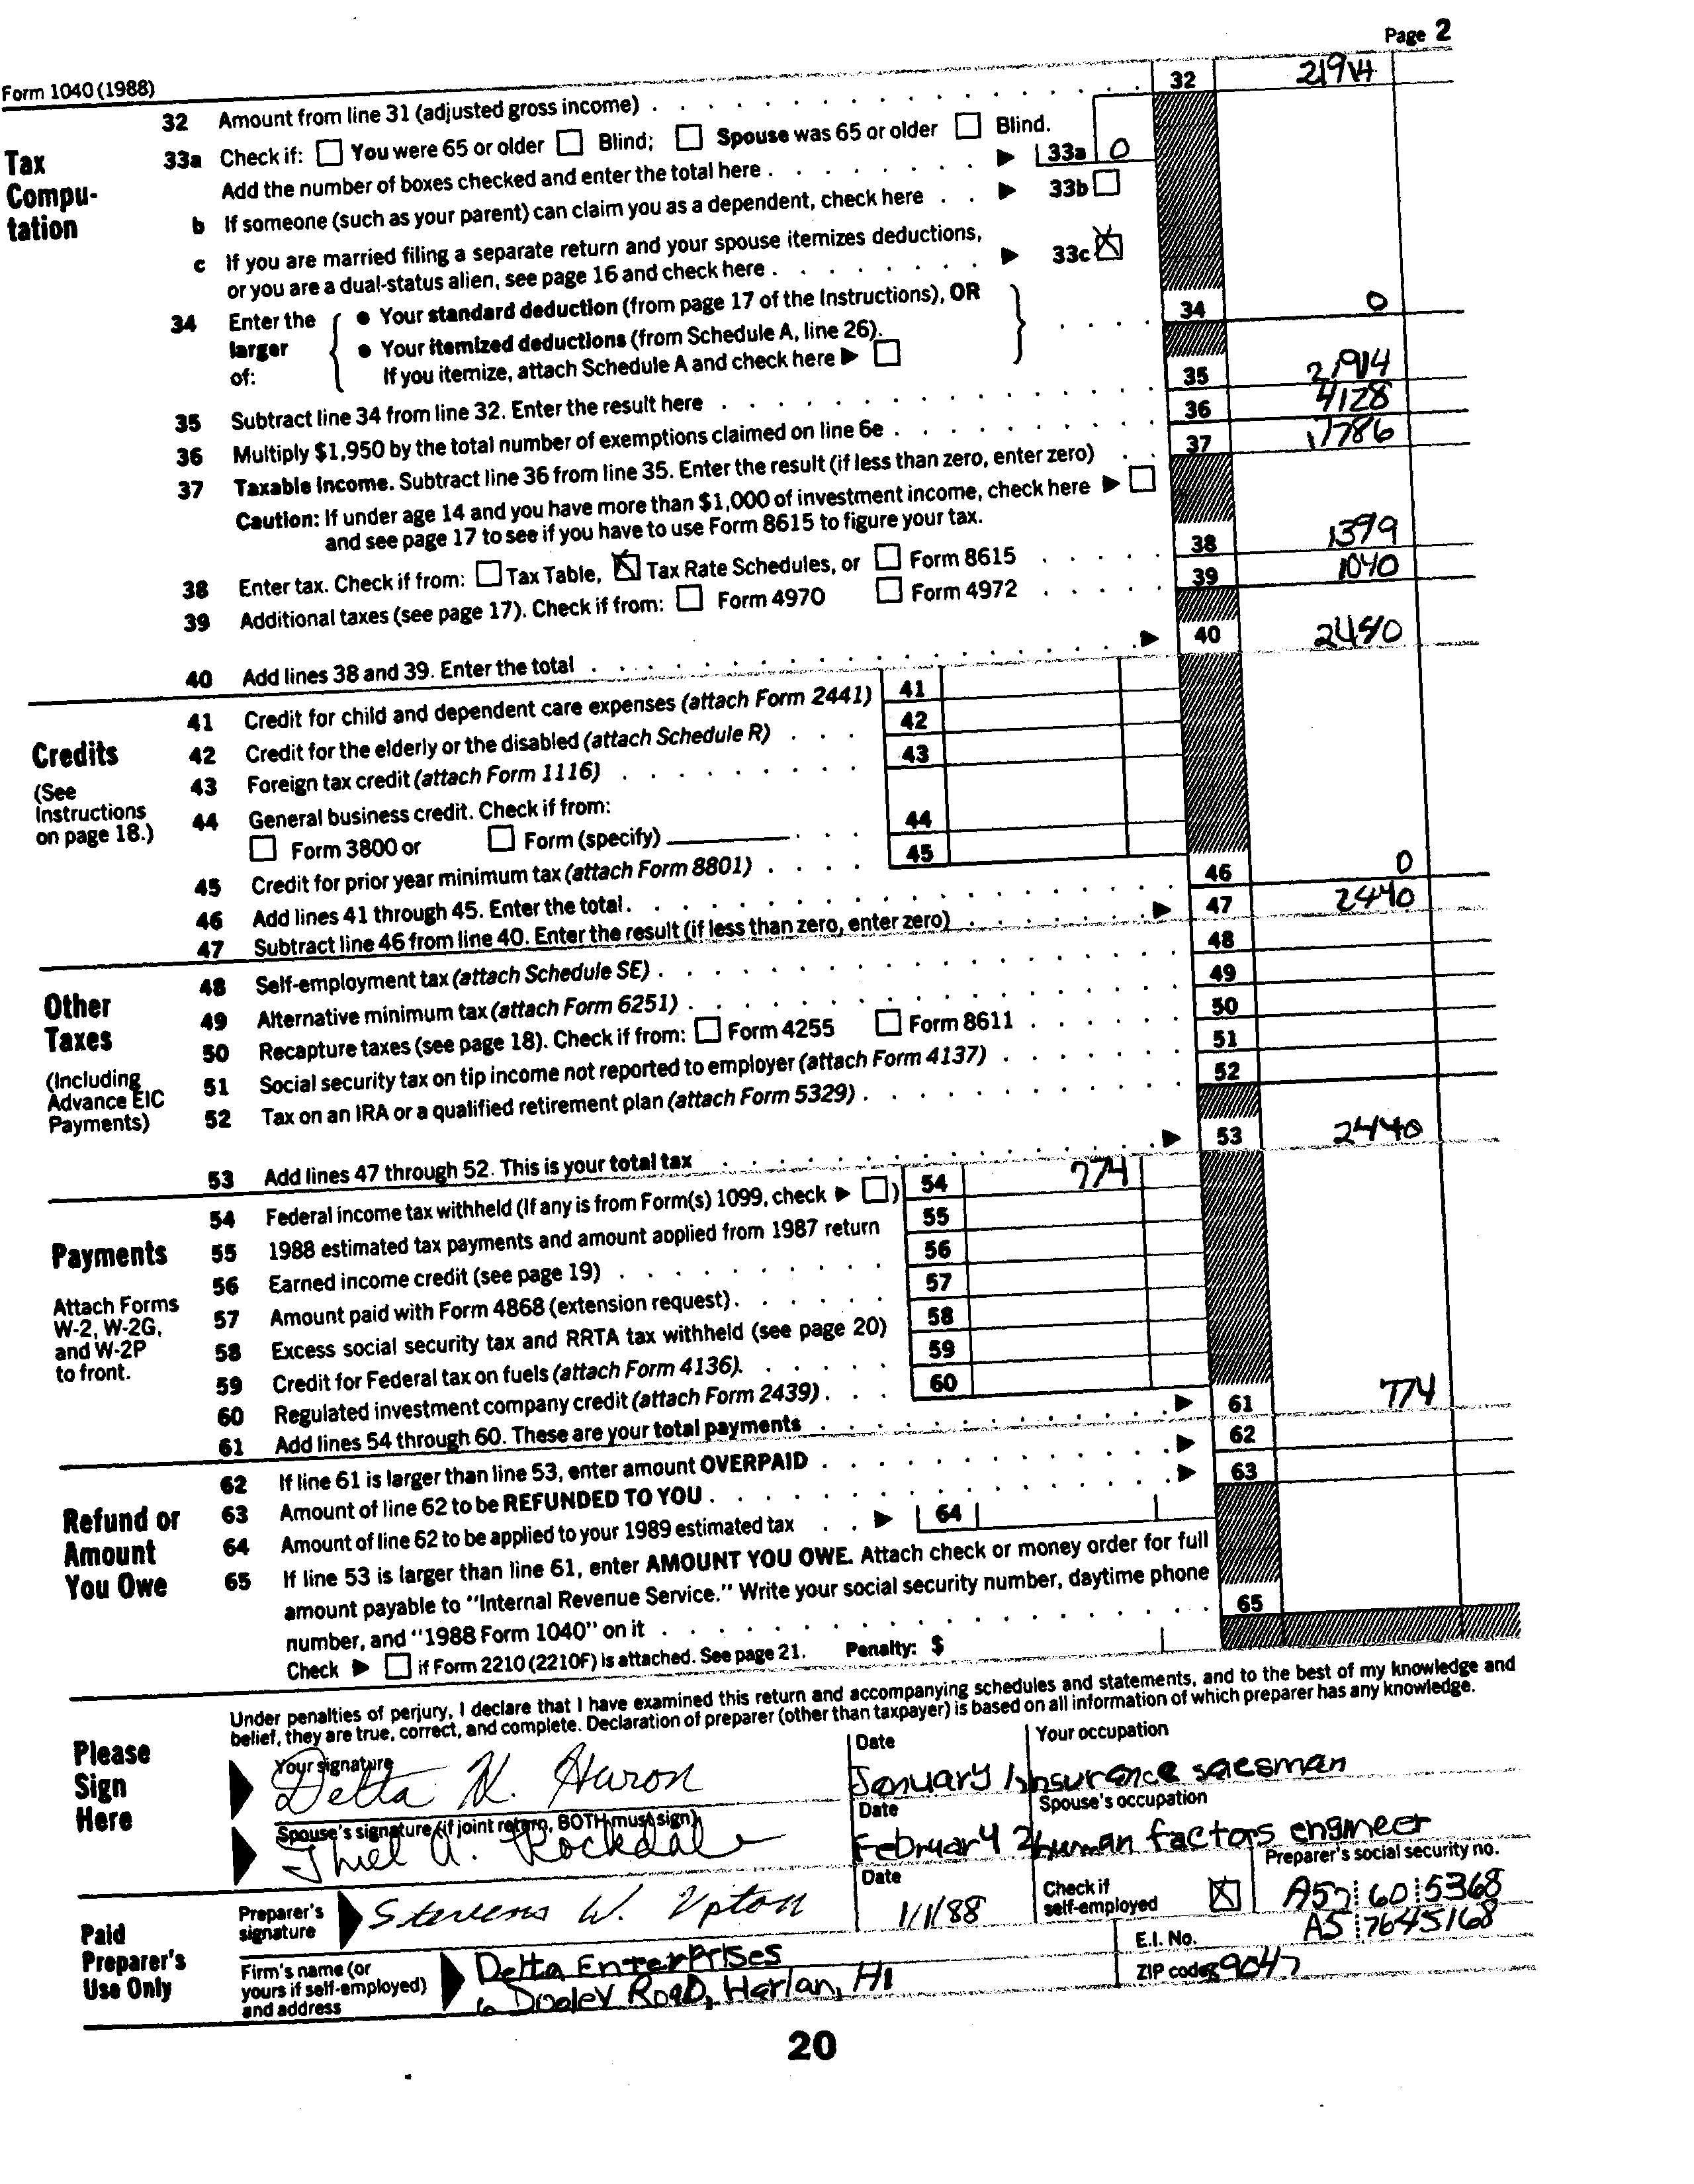 Page 2
Form 1040 (1988)
32 Amount from line 31 (adjusted gross income) 32 21914
Tax Computation
33a Check if: You were 65 or older Blind; Spouse was 65 or older Blind.
Add the number of boxes checked and enter the total here 33a 0
b If someone (such as your parent) can claim you as a dependent, check here 33b
c If you are married filing a separate return and your spouse itemizes deductions,
or you are a dual-status alien, see page 16 and check here 33c X
34 Enter the larger of: • Your standard deduction (from page 17 of the Instructions), OR 34 0
• Your itemized deductions (from Schedule A, line 26).
If you itemize, attach Schedule A and check here
35 Subtract line 34 from line 32. Enter the result here 35 21914
36 Multiply $1,950 by the total number of exemptions claimed on line 6e 36 4128
37 Taxable income. Subtract line 36 from line 35. Enter the result (if less than zero, enter zero) 37 17786
Caution: If under age 14 and you have more than $1,000 of investment income, check here
and see page 17 to see if you have to use Form 8615 to figure your tax.
38 Enter tax. Check if from: Tax Table, X Tax Rate Schedules, or Form 8615 38 1399
39 Additional taxes (see page 17). Check if from: Form 4970 Form 4972 39 1040
40 Add lines 38 and 39. Enter the total 40 2440
Credits
(See Instructions on page 18.)
41 Credit for child and dependent care expenses (attach Form 2441) 41
42 Credit for the elderly or the disabled (attach Schedule R) 42
43 Foreign tax credit (attach Form 1116) 43
44 General business credit. Check if from:
Form 3800 or Form (specify) 44
45 Credit for prior year minimum tax (attach Form 8801) 45
46 Add lines 41 through 45. Enter the total 46 0
47 Subtract line 46 from line 40. Enter the result (if less than zero, enter zero) 47 2440
Other Taxes
(Including Advance EIC Payments)
48 Self-employment tax (attach Schedule SE) 48
49 Alternative minimum tax (attach Form 6251) 49
50 Recapture taxes (see page 18). Check if from: Form 4255 Form 8611 50
51 Social security tax on tip income not reported to employer (attach Form 4137) 51
52 Tax on an IRA or a qualified retirement plan (attach Form 5329) 52
53 Add lines 47 through 52. This is your total tax 53 2440
Payments
Attach Forms W-2, W-2G, and W-2P to front.
54 Federal income tax withheld (If any is from Form(s) 1099, check ) 54 774
55 1988 estimated tax payments and amount applied from 1987 return 55
56 Earned income credit (see page 19) 56
57 Amount paid with Form 4868 (extension request) 57
58 Excess social security tax and RRTA tax withheld (see page 20) 58
59 Credit for Federal tax on fuels (attach Form 4136). 59
60 Regulated investment company credit (attach Form 2439) 60
61 Add lines 54 through 60. These are your total payments 61 774
Refund or Amount You Owe
62 If line 61 is larger than line 53, enter amount OVERPAID 62
63 Amount of line 62 to be REFUNDED TO YOU 63
64 Amount of line 62 to be applied to your 1989 estimated tax 64
65 If line 53 is larger than line 61, enter AMOUNT YOU OWE. Attach check or money order for full
amount payable to "Internal Revenue Service." Write your social security number, daytime phone
number, and "1988 Form 1040" on it 65
Check if Form 2210 (2210F) is attached. See page 21. Penalty: $
Please Sign Here
Under penalties of perjury, I declare that I have examined this return and accompanying schedules and statements, and to the best of my knowledge and
belief, they are true, correct, and complete. Declaration of preparer (other than taxpayer) is based on all information of which preparer has any knowledge.
Your signature Date Your occupation
Delta N. Huron January 1 insurance salesman
Spouse's signature (if joint return, BOTH must sign) Date Spouse's occupation
Thiel A. Rockdale February 2 human factors engineer
Paid Preparer's Use Only
Preparer's signature Stevens W. Upton Date 1/1/88 Check if self-employed X Preparer's social security no. 60 5368
Firm's name (or yours if self-employed) and address Delta Enterprises E.I. No. A5 7645168
6 Dooley Road, Harlan, HI ZIP code 89047
20